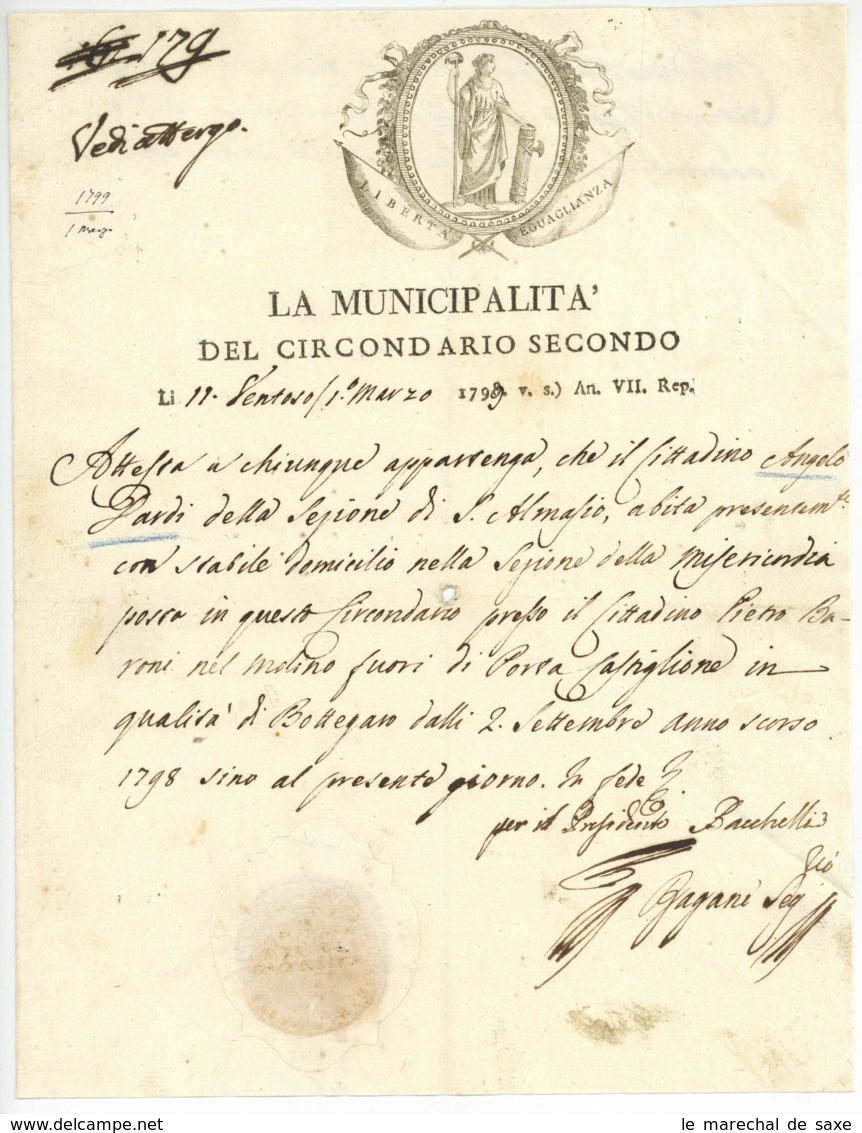 179
Vedi attergo.
1799
1 Marzo
LIBERTA
EGUAGLIANZA
LA MUNICIPALITA'
DEL CIRCONDARIO SECONDO
Li 11. Ventoso (1.º Marzo 1799. v. s.) An. VII. Rep.
Attesta a chiunque appartenga, che il Cittadino Angelo
Pardi della Sezione di S. Almasio, abita presentem.te
con stabile domicilio nella Sezione della Misericordia
posta in questo Circondario presso il Cittadino Pietro Ba-
roni nel Molino fuori di Porta Castiglione in
qualità di Bottegaro dalli 2. Settembre anno scorso
1798 sino al presente giorno. In fede
per il Presidente Bacchelli
Pagani Seg.rio
le marechal de saxe